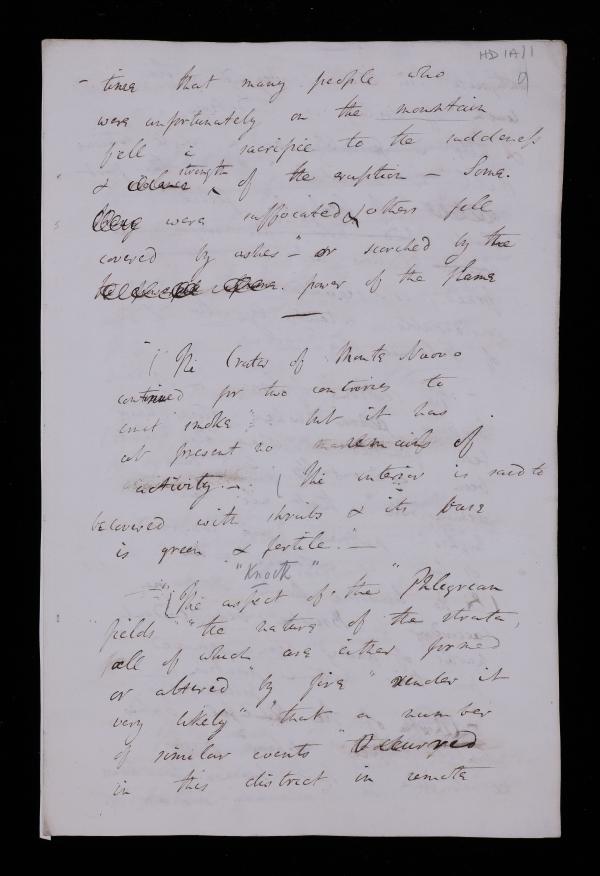 HD 1A/1
9
- time that many people who
were unfortunately on the mountain
fell a sacrifice to the suddeness
& strength of the eruption - Some.
were suffocated & others fell
covered by ashes" - or scorched by the
power of the flame
"( The Crater of Monte Nuovo
continued for two centuries to
emit smoke" but it has
at present no remains of
activity. - ( The interior is said to
be covered with shrubs & its base
is green & fertile." -
"Knock"
(The aspect of "the" "Phlegrean
fields" "the nature of the strata,
all of which are either formed
or altered "by fire" render it
very likely" "that a number
of similar events "occurred
in this district in remote